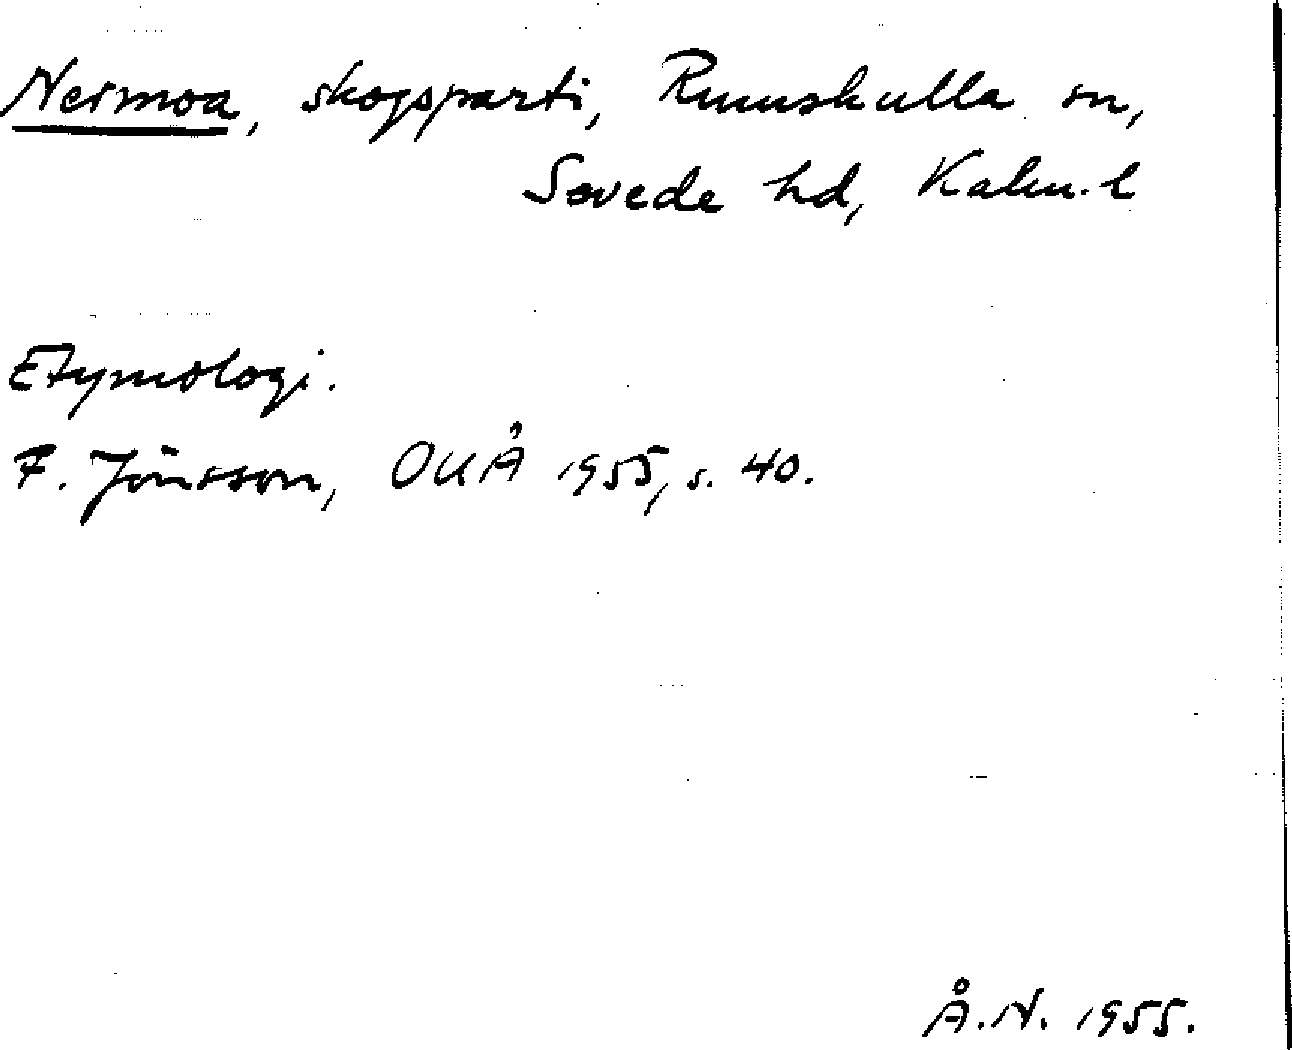 Nermoa, skogsparti, Rumskulla sn,
Sevede hd, Kalm. l
Etymologi.
F. Jönsson, OUÅ 1955, s. 40.
Å.N. 1955.